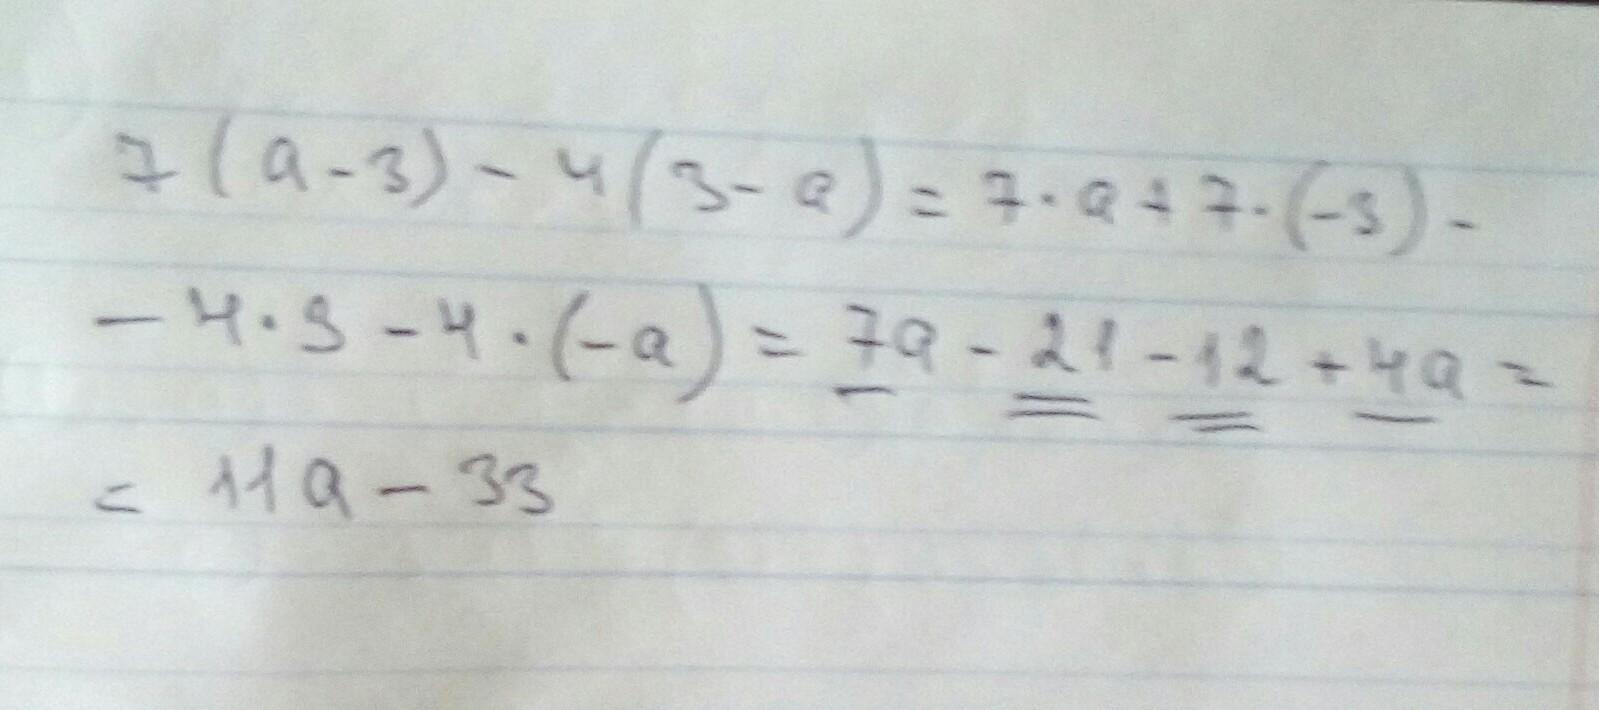 7(a-3)-4(3-a)=7·a+7·(-3)-
-4·3-4·(-a)=7a-21-12+4a=
=11a-33